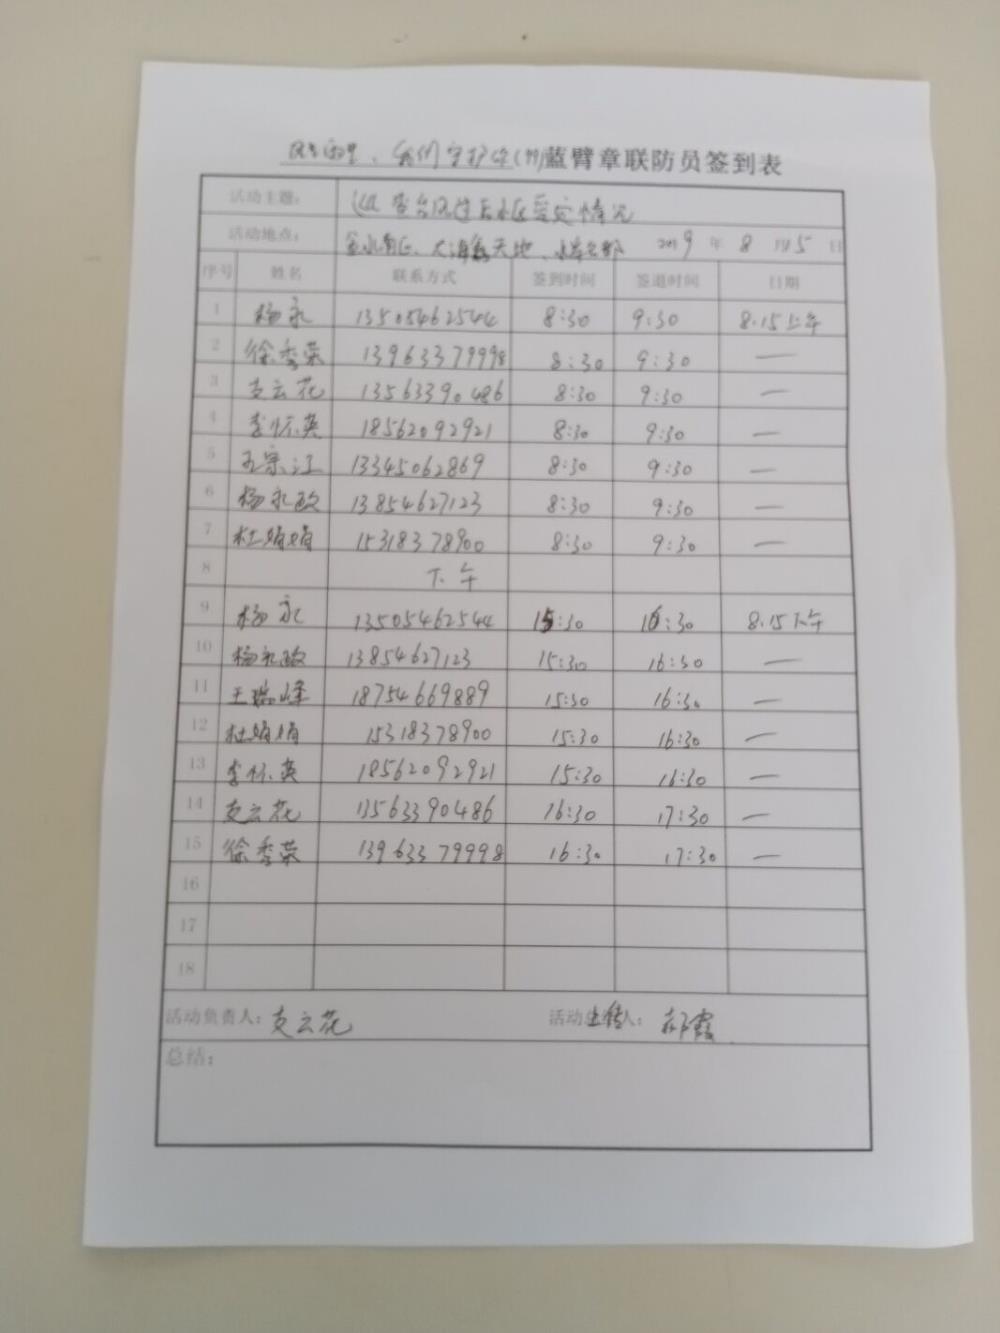 风里雨里、我们守护您(队)蓝臂章联防员签到表
活动主题: 巡查台风过后小区受灾情况
活动地点: 金水南区、大海新天地、水岸名都 2019年8月15日
序号 姓名 联系方式 签到时间 签退时间 日期
1 杨永 13505462544 8:30 9:30 8.15上午
2 徐秀荣 13963379998 8:30 9:30 —
3 支云花 13563390486 8:30 9:30 —
4 李怀英 18562092921 8:30 9:30 —
5 宗江 13345062869 8:30 9:30 —
6 杨永政 13854627123 8:30 9:30 —
7 杜娟娟 15318378900 8:30 9:30 —
8 下午
9 杨永 13505462544 15:30 16:30 8.15下午
10 杨永政 13854627123 15:30 16:30 —
11 王瑞峰 18754669889 15:30 16:30 —
12 杜娟娟 15318378900 15:30 16:30 —
13 李怀英 18562092921 15:30 16:30 —
14 支云花 13563390486 16:30 17:30 —
15 徐秀荣 13963379998 16:30 17:30 —
16
17
18
活动负责人: 支云花 活动人: 郝霞
总结: